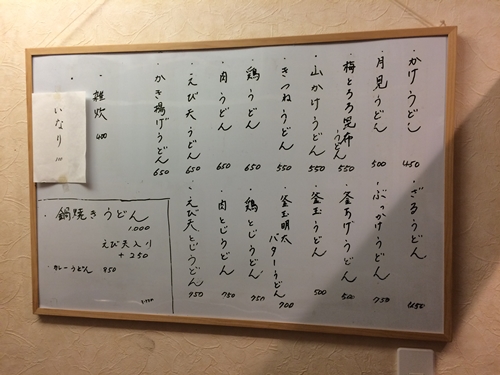 ・かけうどん 450
・月見うどん 500
・梅とろろ昆布うどん 550
・山かけうどん 550
・きつねうどん 550
・鶏うどん 650
・肉うどん 650
・えび天うどん 650
・かき揚げうどん 650
・雑炊 400
いなり
・ざるうどん
・ぶっかけうどん 750
・釜あげうどん 500
・釜玉うどん 500
・釜玉明太バターうどん 700
・鶏とじうどん 750
・肉とじうどん 750
・えび天とじうどん 950
・鍋焼きうどん
1.000
えび天入り
+250
カレーうどん 850